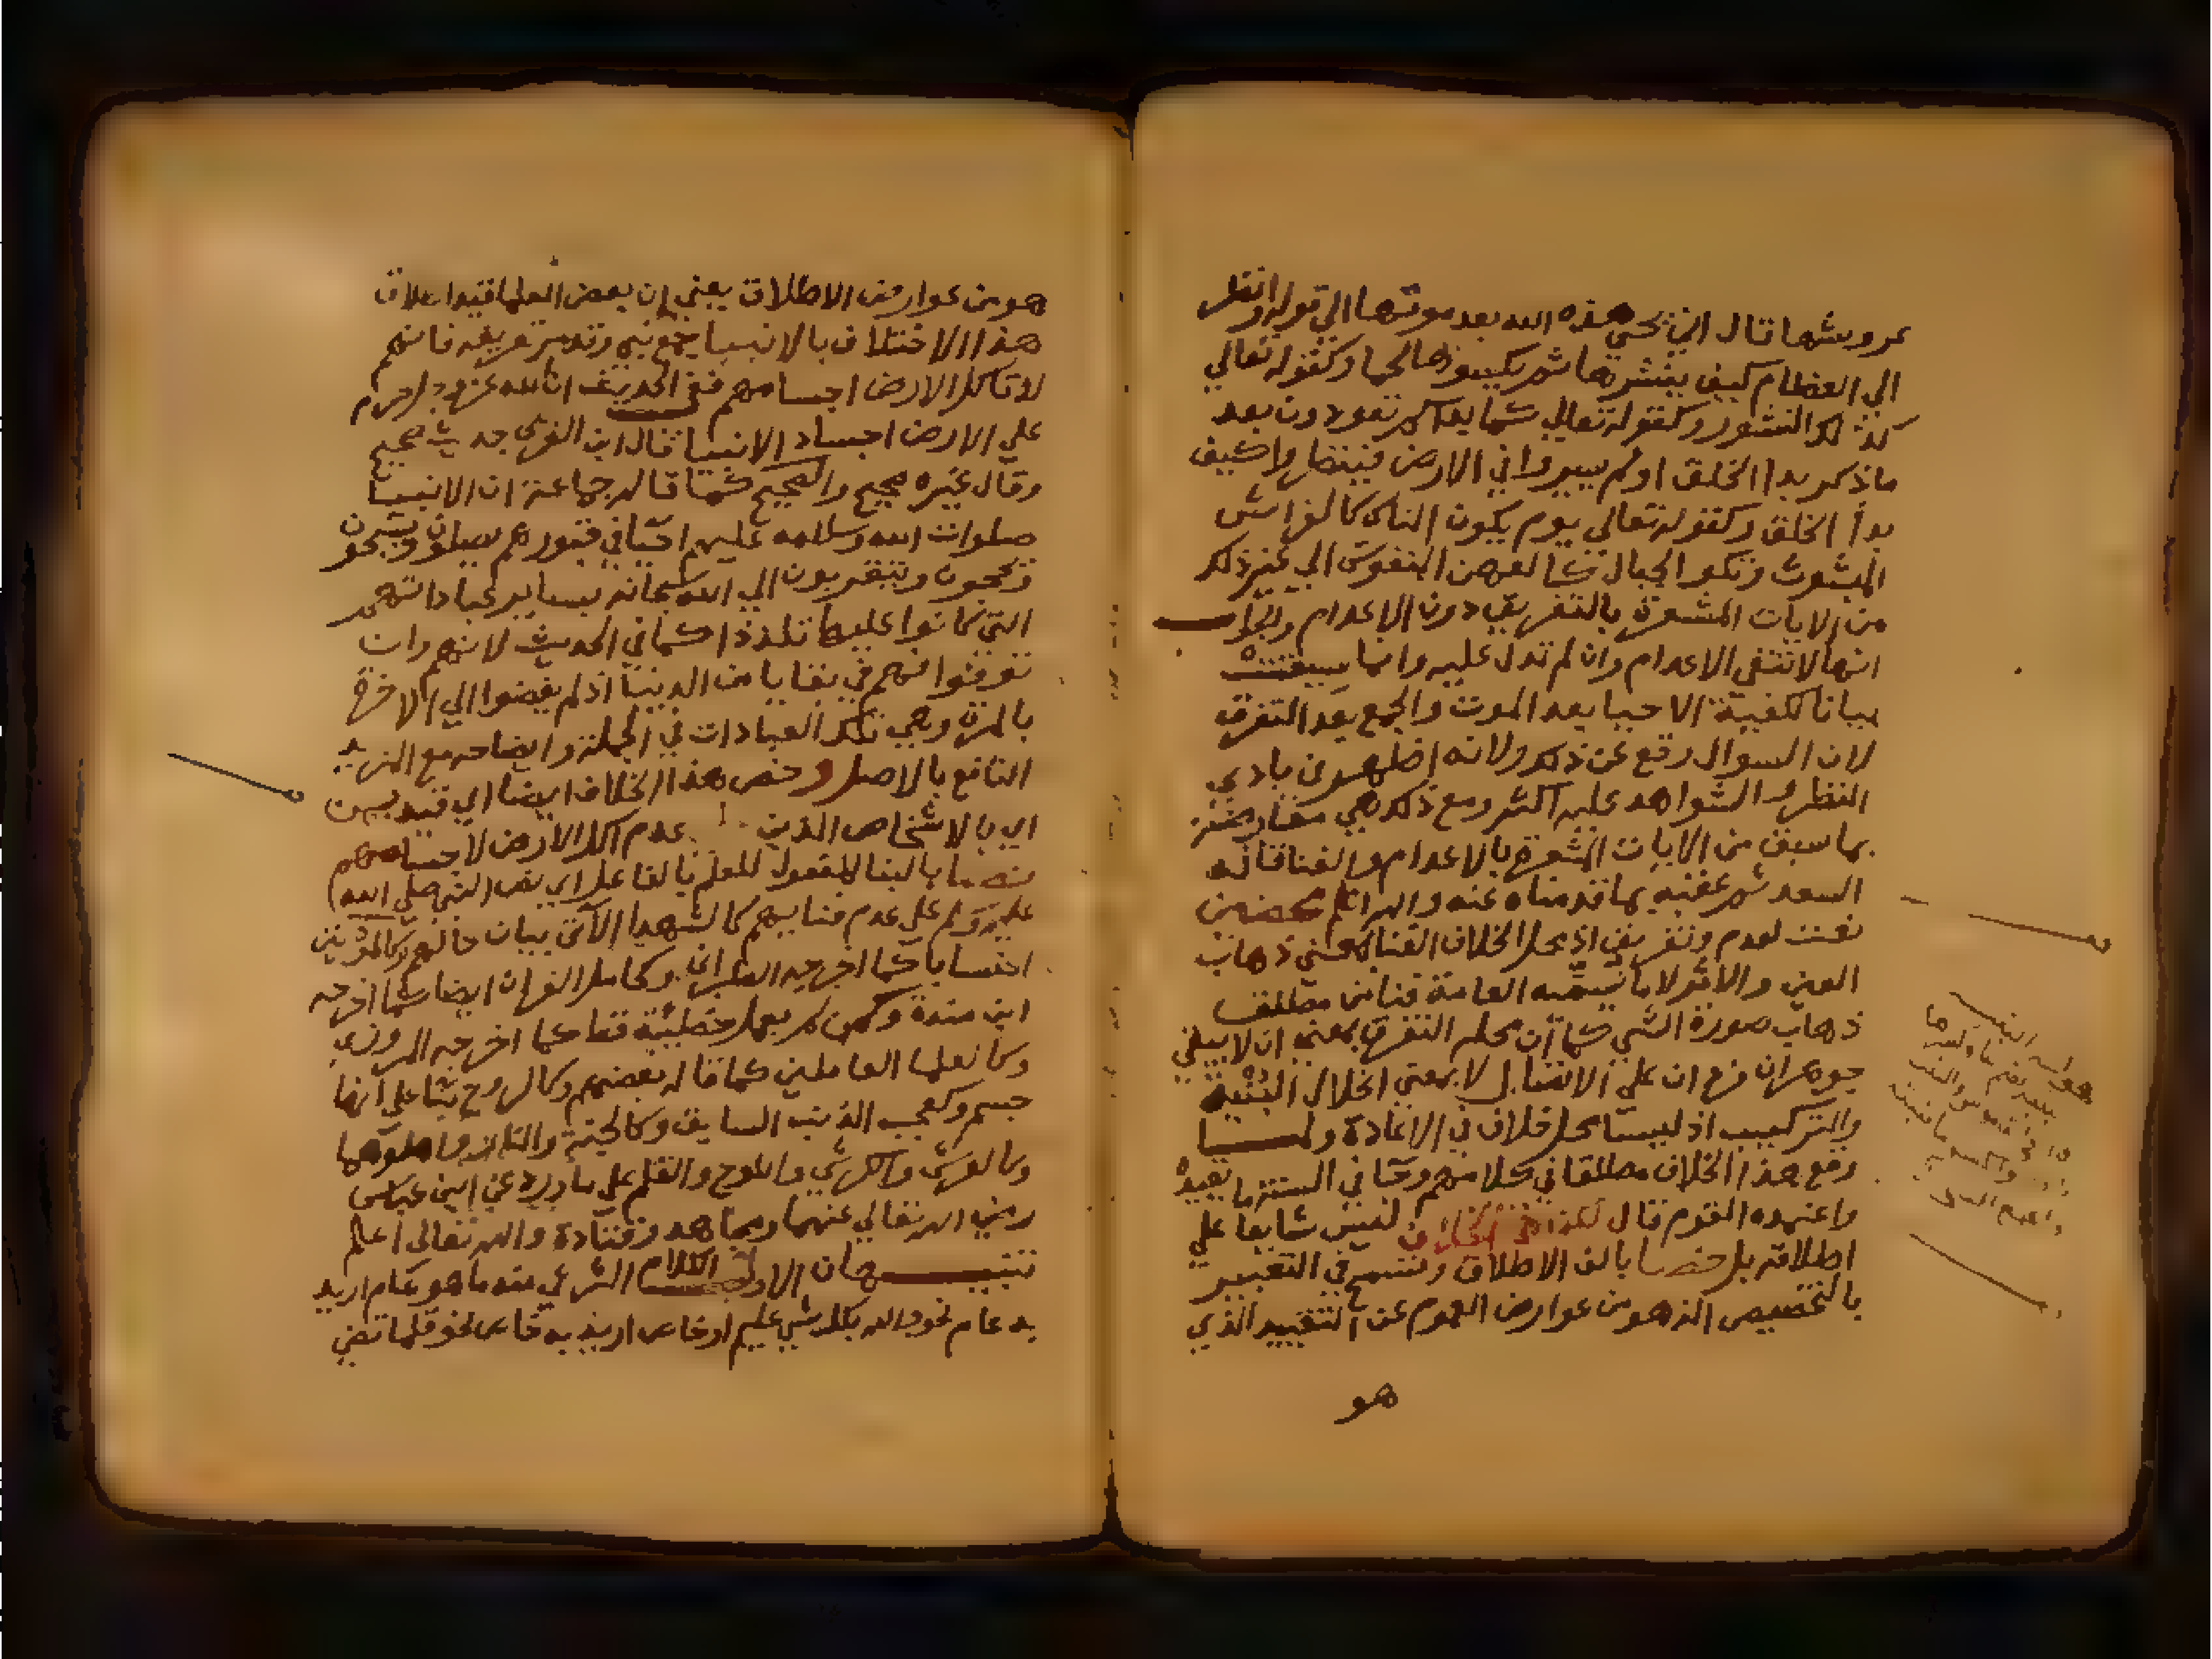 عروشها قال انى يحيى هذه الله بعد موتها الي قوله وانظر
الي العظام كيف ننشرها ثم نكسوها لحما وكقوله تعالي
كذلك النشور وكقوله تعالي كما بداكم تعودون بعد
ماذكر بدا الخلق اولم يسيروا في الارض فينظروا كيف
بدأ الخلق وكقوله تعالي يوم يكون الناس كالفراش
المبثوث وتكون الجبال كالعهن المنفوش الي غير ذلك
من الايات المشعرة بالتفريق دون الاعدام والجواب
انها لا تنفي الاعدام وان لم تدل عليه وانما سيقت
بيانا لكيفية الاحيا بعد الموت والجمع بعد التفرق
لان السوال وقع عن ذلك ولانه اظهر من بادي
النظر والشواهد عليه اكثر ومع ذلك هي معارضة
بما سبق من الايات المشعرة بالاعدام والفنا قاله
السعد ثم عقبه بما قدمناه عنه والله اعلم محضين
نعت لعدم وتفريق اذ محل الخلاف الفنا بمعني ذهاب
العين والاثر لا ما تسميه العامة فنا من مطلق
ذهاب صورة الشي كما ان محله التفرق بمعني ان لا يبقي
جوهران فرع ان علي الاتصال لا بمعني اختلال البنية
والتركيب اذ ليستا محل خلاف في الاعادة ولما
وقع هذا الخلاف مطلقا في كلامهم وكان في السنة ما يقيده
واعتمده القوم قال لكن ذا الخلاف ليس شايعا علي
اطلاقه بل خصا بالف الاطلاق وتسمح في التعبير
بالتخصيص الذي هو من عوارض العموم عن التقييد الذي
هو
هو من عوارض الاطلاق يعني ان بعض العلما قيدوا اطلاق
هذا الاختلاف بالانبيا جمع نبي وقد مر تعريفه فانهم
لا تاكل الارض اجسامهم ففي الحديث ان الله عز وجل حرم
علي الارض اجساد الانبيا قال ابن العربي حديث صحيح
وقال غيره صحيح والصحيح كما قاله جماعة ان الانبيا
صلوات الله وسلامه عليهم احيا في قبورهم يصلون
ويحجون ويتقربون الي الله سبحانه بساير عباداتهم
التي كانوا عليها تلذذا كما في الحديث لانهم وان
توفوا فهم في بقايا من الدنيا اذ لم يفضوا الي الاخرة
بالمرة وهي تلك العبادات في الجملة وايضاحه مع المزيد
النافع بالاصل وخص هذا الخلاف ايضا اي قيد بمن
اي بالاشخاص الذين عدم اكل الارض لاجسامهم
نصا بالبنا للمفعول للعلم بالفاعل اي نص النبي صلي الله
عليه وسلم علي عدم فنايهم كالشهدا الآتي بيان حالهم وكالموذنين
احتسابا كما اخرجه الطبراني وكحامل القران ايضا كما اخرجه
ابن مندة وكمن لم يعمل خطيئة قط كما اخرجه المروزي
وكالعلما العاملين كما قاله بعضهم وكالروح بنا علي انها
جسم وكعجب الذنب السابق وكالجنة والنار واهلهما
وكالعرش والكرسي واللوح والقلم علي ما ورد عن ابن عباس
رضي الله تعالي عنهما ومجاهد وقتادة والله تعالي اعلم
تنبيهان الاول الكلام الشرعي منه ما هو عام اريد
به عام نحو والله بكل شي عليم او خاص اريد به خاص نحو فلما قضي